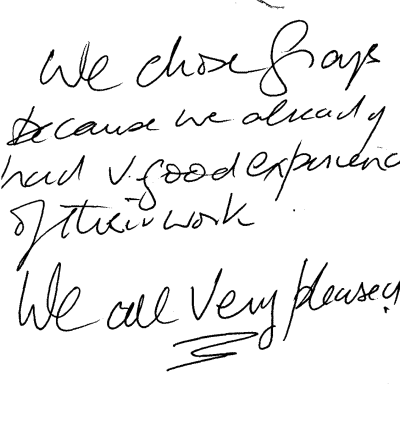 We chose Grays
because we already
had v. good experienc
of their work
We are Very pleased!